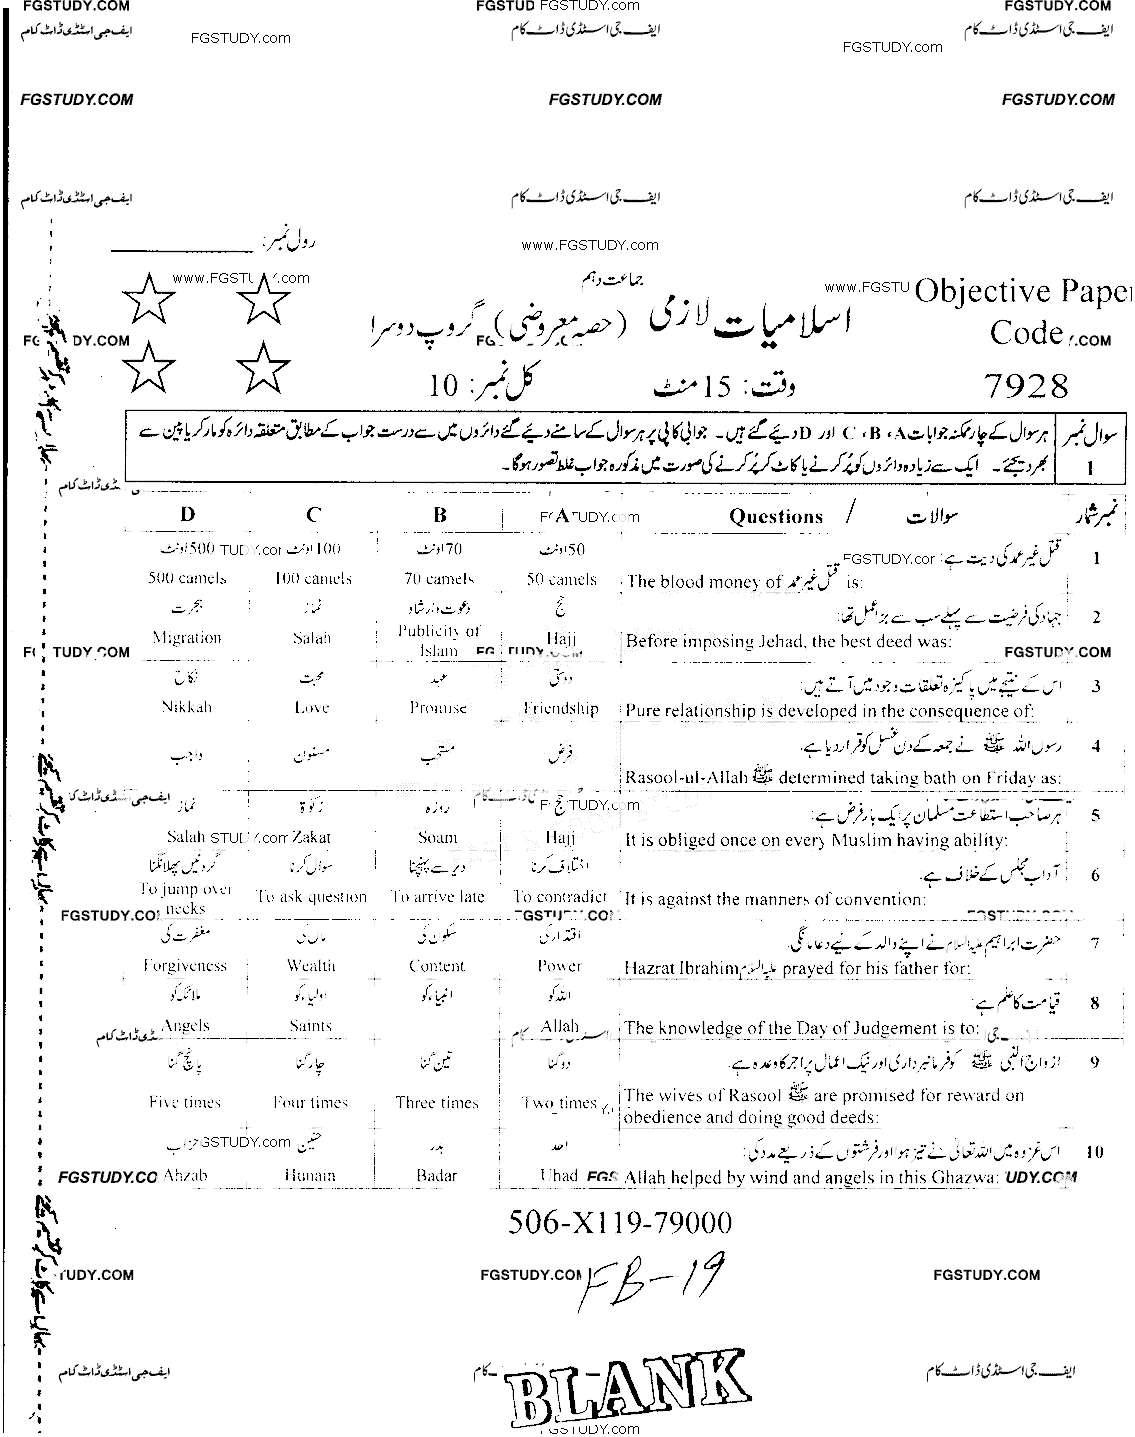 FGSTUDY.COM FGSTUD FGSTUDY.com FGSTUDY.COM
ایف جی اسٹڈی ڈاٹ کام FGSTUDY.com ایف جی اسٹڈی ڈاٹ کام FGSTUDY.com ایف جی اسٹڈی ڈاٹ کام
FGSTUDY.COM FGSTUDY.COM FGSTUDY.COM
ایف جی اسٹڈی ڈاٹ کام ایف جی اسٹڈی ڈاٹ کام ایف جی اسٹڈی ڈاٹ کام
رول نمبر: ____________ www.FGSTUDY.com
جماعت دہم
Objective Paper
اسلامیات لازمی (حصہ معروضی) گروپ دوسرا
Code
7928 وقت: 15 منٹ کل نمبر: 10
سوال نمبر 1 ہر سوال کے چار ممکنہ جوابات A، B، C اور D دیئے گئے ہیں۔ جوابی کاپی پر ہر سوال کے سامنے دیئے گئے دائروں میں سے درست جواب کے مطابق متعلقہ دائرہ کو مارکر یا پین سے
بھر دیجئے۔ ایک سے زیادہ دائروں کو پُر کرنے یا کاٹ کر پُر کرنے کی صورت میں مذکورہ جواب غلط تصور ہوگا۔
D C B A Questions / سوالات نمبر شمار
1 قتل غیر عمد کی دیت ہے: 50 اونٹ 70 اونٹ 100 اونٹ 500 اونٹ
500 camels 100 camels 70 camels 50 camels The blood money of قتل غیر عمد is:
2 جہاد کی فرضیت سے پہلے سب سے بڑا عمل تھا: حج دعوت و ارشاد نماز ہجرت
Migration Salah Publicity of Islam Hajj Before imposing Jehad, the best deed was:
FGSTUDY.COM
3 اس کے نتیجے میں پاکیزہ تعلقات وجود میں آتے ہیں: دوستی عہد محبت نکاح
Nikkah Love Promise Friendship Pure relationship is developed in the consequence of:
4 رسول اللہ ﷺ نے جمعہ کے دن غسل کو قرار دیا ہے۔ فرض مستحب مسنون واجب
Rasool-ul-Allah ﷺ determined taking bath on Friday as:
5 ہر صاحب استطاعت مسلمان پر ایک بار فرض ہے: حج روزہ زکوٰۃ نماز
Salah Zakat Soam Hajj It is obliged once on every Muslim having ability:
6 آداب مجلس کے خلاف ہے۔ اختلاف کرنا دیر سے پہنچنا سوال کرنا گردنیں پھلانگنا
To jump over necks To ask question To arrive late To contradict It is against the manners of convention:
7 حضرت ابراہیم علیہ السلام نے اپنے والد کے لیے دعا مانگی۔ اقتدار کی سکون کی مال کی مغفرت کی
Forgiveness Wealth Content Power Hazrat Ibrahim علیہ السلام prayed for his father for:
8 قیامت کا علم ہے: اللہ کو انبیاء کو اولیاء کو ملائکہ کو
Angels Saints Allah The knowledge of the Day of Judgement is to:
9 ازواج النبی ﷺ کو فرمانبرداری اور نیک اعمال پر اجر کا وعدہ ہے۔ دو گنا تین گنا چار گنا پانچ گنا
Five times Four times Three times Two times The wives of Rasool ﷺ are promised for reward on
obedience and doing good deeds:
10 اس غزوہ میں اللہ تعالیٰ نے تیز ہوا اور فرشتوں کے ذریعے مدد کی: احد بدر حنین احزاب
Ahzab Hunain Badar Uhad Allah helped by wind and angels in this Ghazwa:
506-X119-79000
FB-19
FGSTUDY.COM
ایف جی اسٹڈی ڈاٹ کام ایف جی اسٹڈی ڈاٹ کام
BLANK